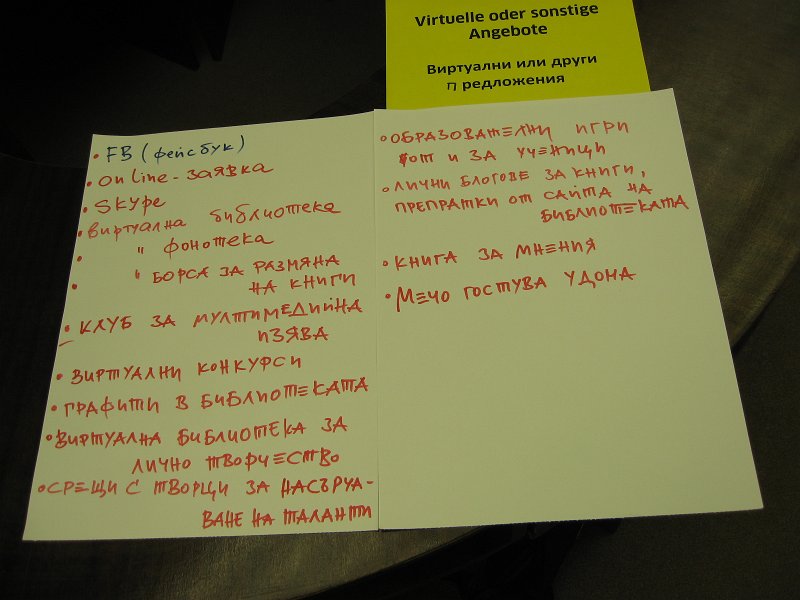 Virtuelle oder sonstige
Angebote
Виртуални или други
П редложения
• FB (фейсбук)
• On line - заявка
• Skype
• Виртуална библиотека
• " фонотека
• " БОРСА ЗА РАЗМЯНА
НА КНИГИ
• КЛУБ ЗА МУЛТИМЕДИЙНА
ИЗЯВА
• ВИРТУАЛНИ КОНКУРСИ
• ГРАФИТИ В БИБЛИОТЕКАТА
• ВИРТУАЛНА БИБЛИОТЕКА ЗА
ЛИЧНО ТВОРЧЕСТВО
• СРЕЩИ С ТВОРЦИ ЗА НАСЪРЧА-
ВАНЕ НА ТАЛАНТИ
• ОБРАЗОВАТЕЛНИ ИГРИ
ОТ И ЗА УЧЕНИЦИ
• ЛИЧНИ БЛОГОВЕ ЗА КНИГИ,
ПРЕПРАТКИ ОТ САЙТА НА
БИБЛИОТЕКАТА
• КНИГА ЗА МНЕНИЯ
• МЕЧО ГОСТУВА У ДОМА